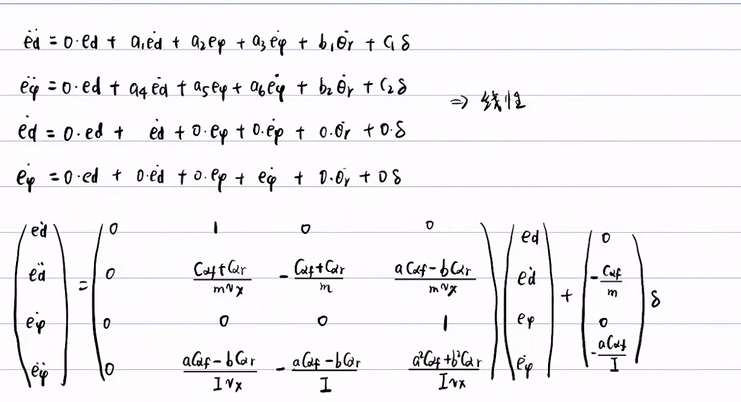 ëd = 0·ed + a₁ėd + a₂eφ + a₃ėφ + b₁θ̇r + C₁δ
ëφ = 0·ed + a₄ėd + a₅eφ + a₆ėφ + b₂θ̇r + C₂δ
⇒ 线性
ėd = 0·ed + ėd + 0·eφ + 0·ėφ + 0·θ̇r + 0·δ
ėφ = 0·ed + 0·ėd + 0·eφ + ėφ + 0·θ̇r + 0δ
(ėd ëd ėφ ëφ) = (0 1 0 0
0 (Cαf+Cαr)/(mvx) -(Cαf+Cαr)/m (aCαf-bCαr)/(mvx)
0 0 0 1
0 (aCαf-bCαr)/(Ivx) -(aCαf-bCαr)/I (a²Cαf+b²Cαr)/(Ivx)) (ed ėd eφ ėφ) + (0 -Cαf/m 0 -aCαf/I) δ